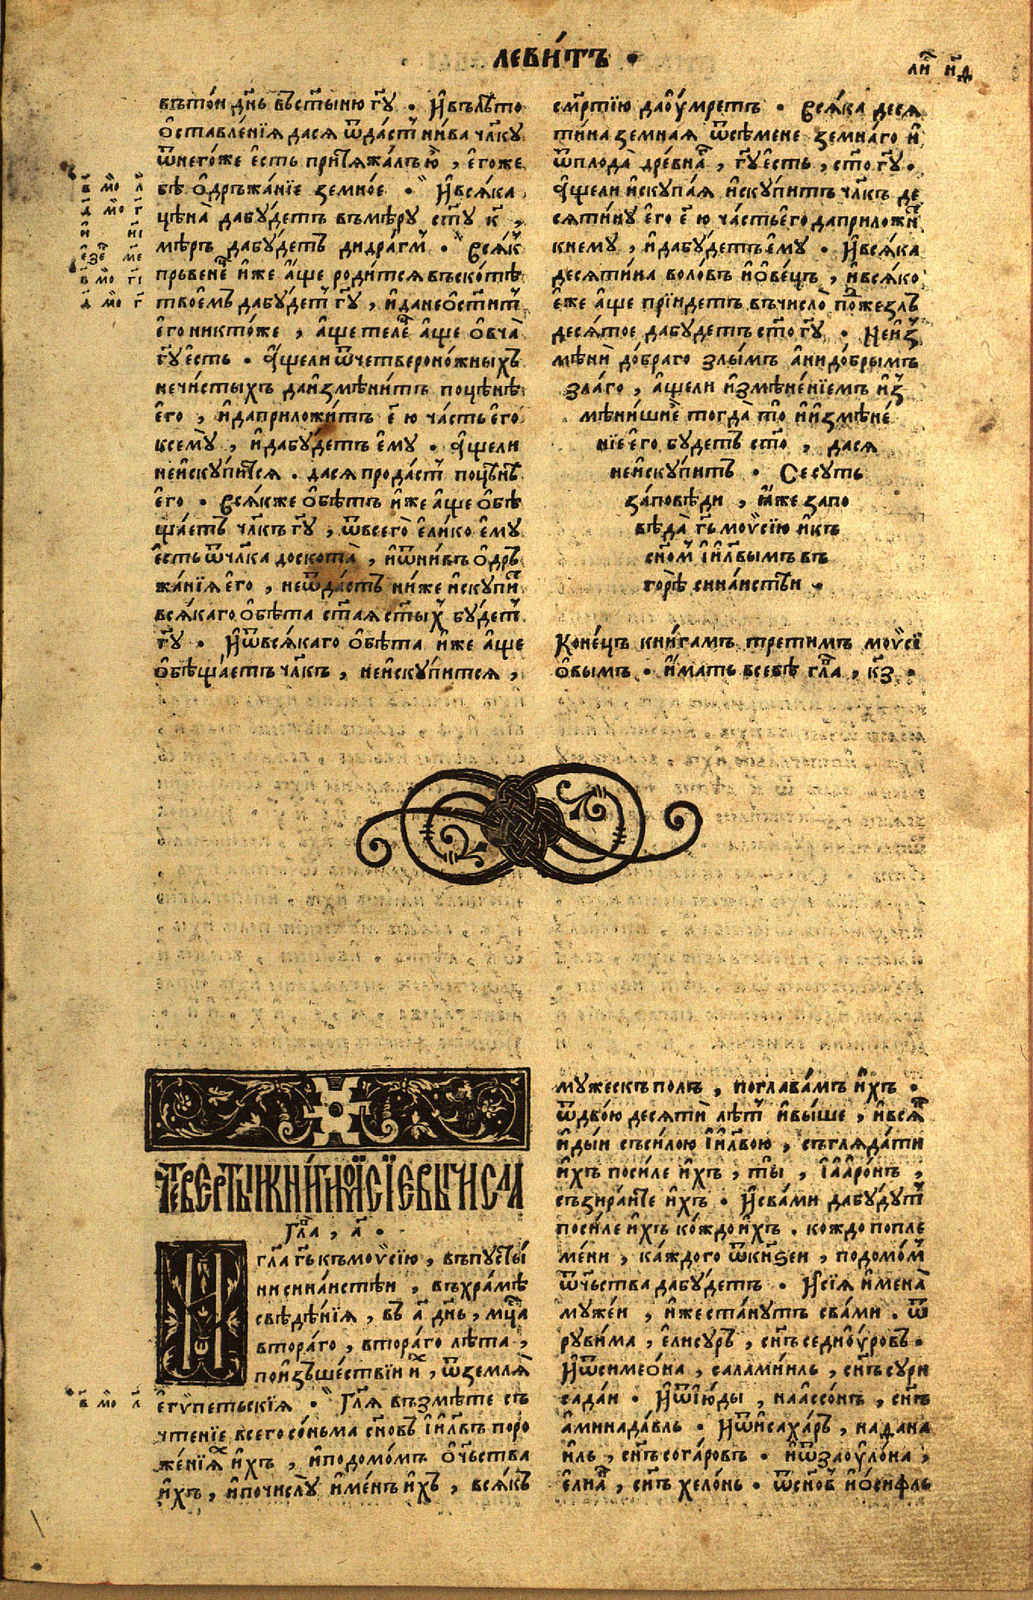 леви́тъ ·
ли҃ н҃д
въто́н дн҃ь въст҃ыню гу҃ · И҆вълѣ́то
ѡ҆ставле́нїя дася ѿда́ст ни́ва чл҃ку
ѿнего́же є҆сть притяжа́лъю̀ , є҆го́же
бѣ̀ ѡ҆дръжа́нїе земно́е · И҆вся́ка
цѣна̀ дабу́детъ въмѣ́ру ст҃у к҃ ,
мѣ́ръ дабу́детъ дидра́гм · Вся́к
пръвене́ц и҆́же а҆́ще роди́тся въско́тѣ
твое́мъ дабу́дет гу҃ , и҆данеѡ҆ст҃и́т
є҆го̀ никто́же , а҆́ще теле́ц а҆́ще ѻ҆вча̀
гу҃ є҆сть · А҆́щели ѿчетвероно́жныхъ
нечи́стыхъ даи҆змѣни́тъ поцѣнѣ̀
є҆го̀ , и҆даприложи́тъ є҃ ю ча́сть є҆го̀
ксему̀ , и҆дабу́детъ є҆му̀ · А҆́щели
неи҆ску́пится · дася прода́ст поцѣнѣ̀
є҆го̀ · Вся́кже ѻ҆бѣ́тъ и҆́же а҆́ще ѻ҆бѣ
ща́етъ чл҃къ гу҃ , ѿвсего̀ є҆ли́ко є҆му̀
є҆сть ѿчл҃ка доскота̀ , и҆ѿни́въ ѻ҆дръ
жа́нїя є҆го̀ , неѿда́стъ ни́же и҆ску́пит
вся́каго ѻ҆бѣ́та ст҃ая ст҃ых бу́дет
гу҃ · И҆ѿвся́каго ѻ҆бѣ́та и҆́же а҆́ще
ѻ҆бѣща́етъ чл҃къ , неи҆ску́пится ,
сме́ртїю даоу҆́мретъ · Вся́ка деся
ти́на земна́я ѿсѣ́мене земна́го и҆
ѿплода̀ дре́вна , гу҃ є҆сть , ст҃о гу҃ ·
А҆́щели и҆скупа́я и҆ску́питъ чл҃къ де
сяти́ну є҆го̀ є҃ ю ча́сть є҆го̀ даприложи́
кнему̀ , и҆дабу́детъ є҆му̀ · И҆вся́ка
десяти́на воло́въ и҆ѻ҆ве́цъ , и҆вся́ко
є҆́же а҆́ще прїи́детъ вчисло̀ поджезлъ
деся́тое дабу́детъ ст҃о гу҃ · Неи҆з
мѣнѝ до́браго злы́мъ а҆нидо́брымъ
зла́го , а҆́щели и҆змѣне́нїемъ и҆з
мѣни́шие тогда̀ то̀ и҆и҆змѣне́
нїе є҆го̀ бу́детъ ст҃о , дася
неи҆ску́питъ · Се су́ть
за́повѣди , ꙗ҆́же запо
вѣ́да гь҃ моѵсїю и҆къ
сно҃м і҆и҃лвымъ въ
горѣ̀ сина́истѣи ·
Коне́цъ кни́гамъ трети́мъ моѵсї
ѻ҆вымъ · и҆́мать всебѣ̀ гл҃а , к҃з ·
Четвертыи книги моѵсїевы числа
Гл҃а , а҃ ·
И҆
гл҃а гь҃ къмоѵсїю , въпусты́
ни сина́истѣи , въхра́мѣ
свѣдѣ́нїя , въ а҃ дн҃ь , мц҃а
втора́го , втора́го лѣ́та ,
пои҆зъше́ствїи и҆х , ѿземля̀
є҆гѵ́петьскїя · Гл҃я възмѣ́те съ
чте́нїе всего̀ со́ньма сно҃въ і҆и҃лвъ поро
же́нїях и҆́хъ , и҆подомо́мъ ѻ҆ч҃ьства
и҆́хъ , и҆почислу̀ и҆ме́нъ и҆́хъ , вся́къ
му́жескъ по́лъ , поглава́мъ и҆́хъ ·
ѿдвою̀ десятѝ лѣ́т и҆вы́ше , и҆вся́к
и҆ды́и съси́лою і҆и҃лвою , съгляда́ти
и҆́хъ поси́ле и҆́хъ , ты̀ , і҆а҆а҆ро́нъ ,
съзира́ите и҆́хъ · И҆сва́ми дабу́дут
поси́ле и҆́хъ ко́ждо и҆́хъ . ко́ждо попле
мени , ка́ждого ѿкнѕе́и , подомо́м
ѿч҃ьства дабу́детъ · И҆сїя̀ и҆мена̀
муже́и , и҆́же ста́нутъ сва́ми · ѿ
руви́ма , є҆лису́ръ , сн҃ъ седиоу́ровъ ·
И҆ѿсимео́на , салами́иль , сн҃ъ сури
сада́и · И҆ѿі҆ю́ды , наассо́нъ , сн҃ъ
а҆минада́вль · И҆ѿи҆саха́ръ , надана
и҆ль , сн҃ъ сога́ровъ · и҆ѿзаоуло́на ,
є҆лиа́в , сн҃ъ хело́нь · ѿсно҃в и҆ѻ҆́сифль